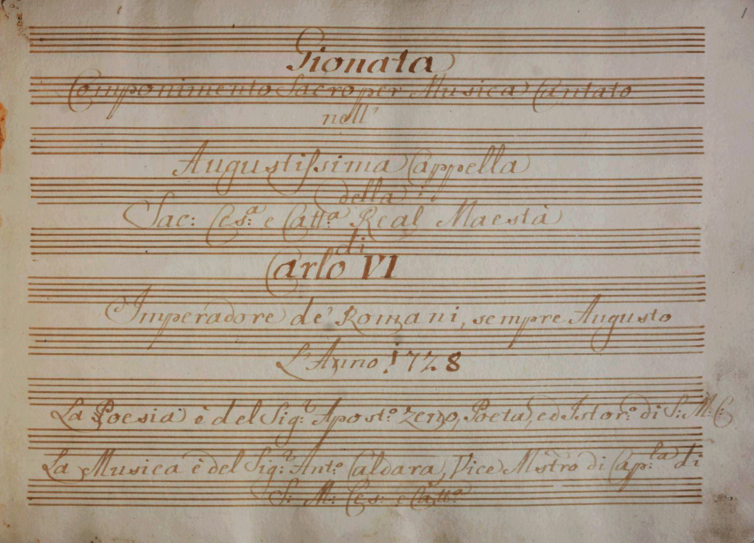 Gionata
Componimento Sacro per Musica Cantato
nell'
Augustissima Cappella
della
Sac: Ces.ª e Catt.ª Real Maestà
di
Carlo VI
Imperadore de' Romani, sempre Augusto
L'Anno 1728
La Poesia è del Sig.r Apost.o Zeno, Poeta, ed Istor.o di S: M: C:
La Musica è del Sig.r Ant.o Caldara, Vice Mstro di Cap.la di
S: M: Ces: e Catt.a